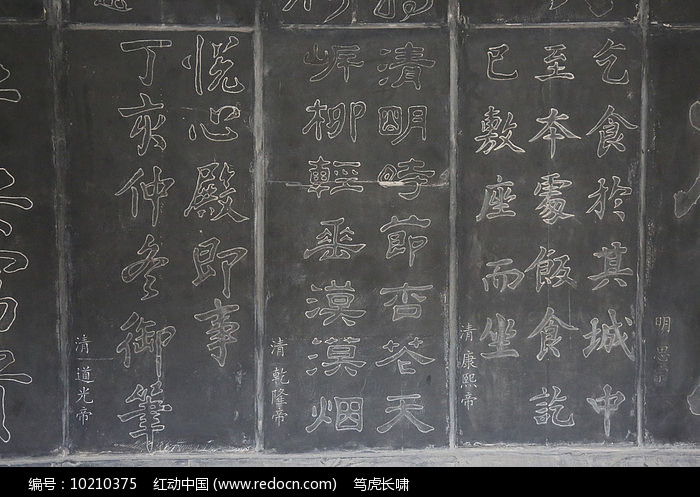 明 思
乞食於其城中
至本處飯食訖
已敷座而坐
清 康熙帝
清明時節杏花天
岸柳輕垂漠漠烟
清 乾隆帝
悦心殿即事
丁亥仲冬御筆
清 道光帝
编号：10210375 红动中国 (www.redocn.com) 笃虎长啸